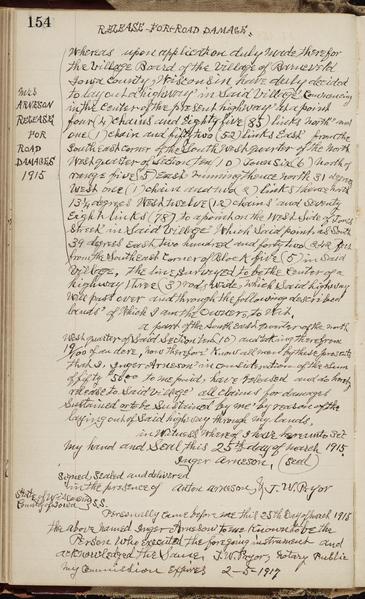 154
RELEASE-FOR-ROAD DAMAGE.
Mrs
ARNESON
RELEASE
FOR
ROAD
DAMAGES
1915
Whereas upon application duly made therefor
the Village Board of the Village of Barneveld
Iowa County Wisconsin have duly decided
to lay out a highway in said Village Commencing
in the Center of the present highway at a point
four (4) chains and Eighty five (85) links north and
one (1) chain and fifty two (52) links East from the
South east corner of the South West quarter of the North
West quarter of Section ten (10) Town Six (6) North of
range five (5) East running thence north 31 degrees
West one (1) chain and two (2) links thence north
13½ degrees West twelve (12) chains and Seventy
Eight links (78) to a point on the West Side of Jones
Street in Said Village Which Said point is South
39 degrees East two hundred and forty two feet
from the South East Corner of Block five (5) in Said
Village, The line surveyed to be the Center of a
highway three (3) rods wide, which said highway
will pass over and through the following described
lands of Which I am the Owner, to Wit,
a part of the South East quarter of the north
West quarter of Said Section ten (10) and taking therefrom
of an acre, now therefore Know all men by these presents
that I, Inger Arneson in consideration of the sum
of fifty 50.00 to me paid, have released and do hereby
release to Said Village all claims for damages
Sustained or to be Sustained by me by reason of the
laying out of Said highway through my lands,
in Witness Whereof I have hereunto set
my hand and Seal this 25th day of march 1915
Inger Arneson, (seal)
Signed, Sealed and delivered
in the presence of Anton Arneson, & J. W. Pryor
State of Wisconsin
County of Iowa } SS.
Personally came before me this 25th Day of march 1915
the above named Inger Arneson to me Known to be the
Person Who executed the foregoing instrument and
acknowledged the Same, J. W. Pryor, Notary Public
my Commission Expires 2-5-1917